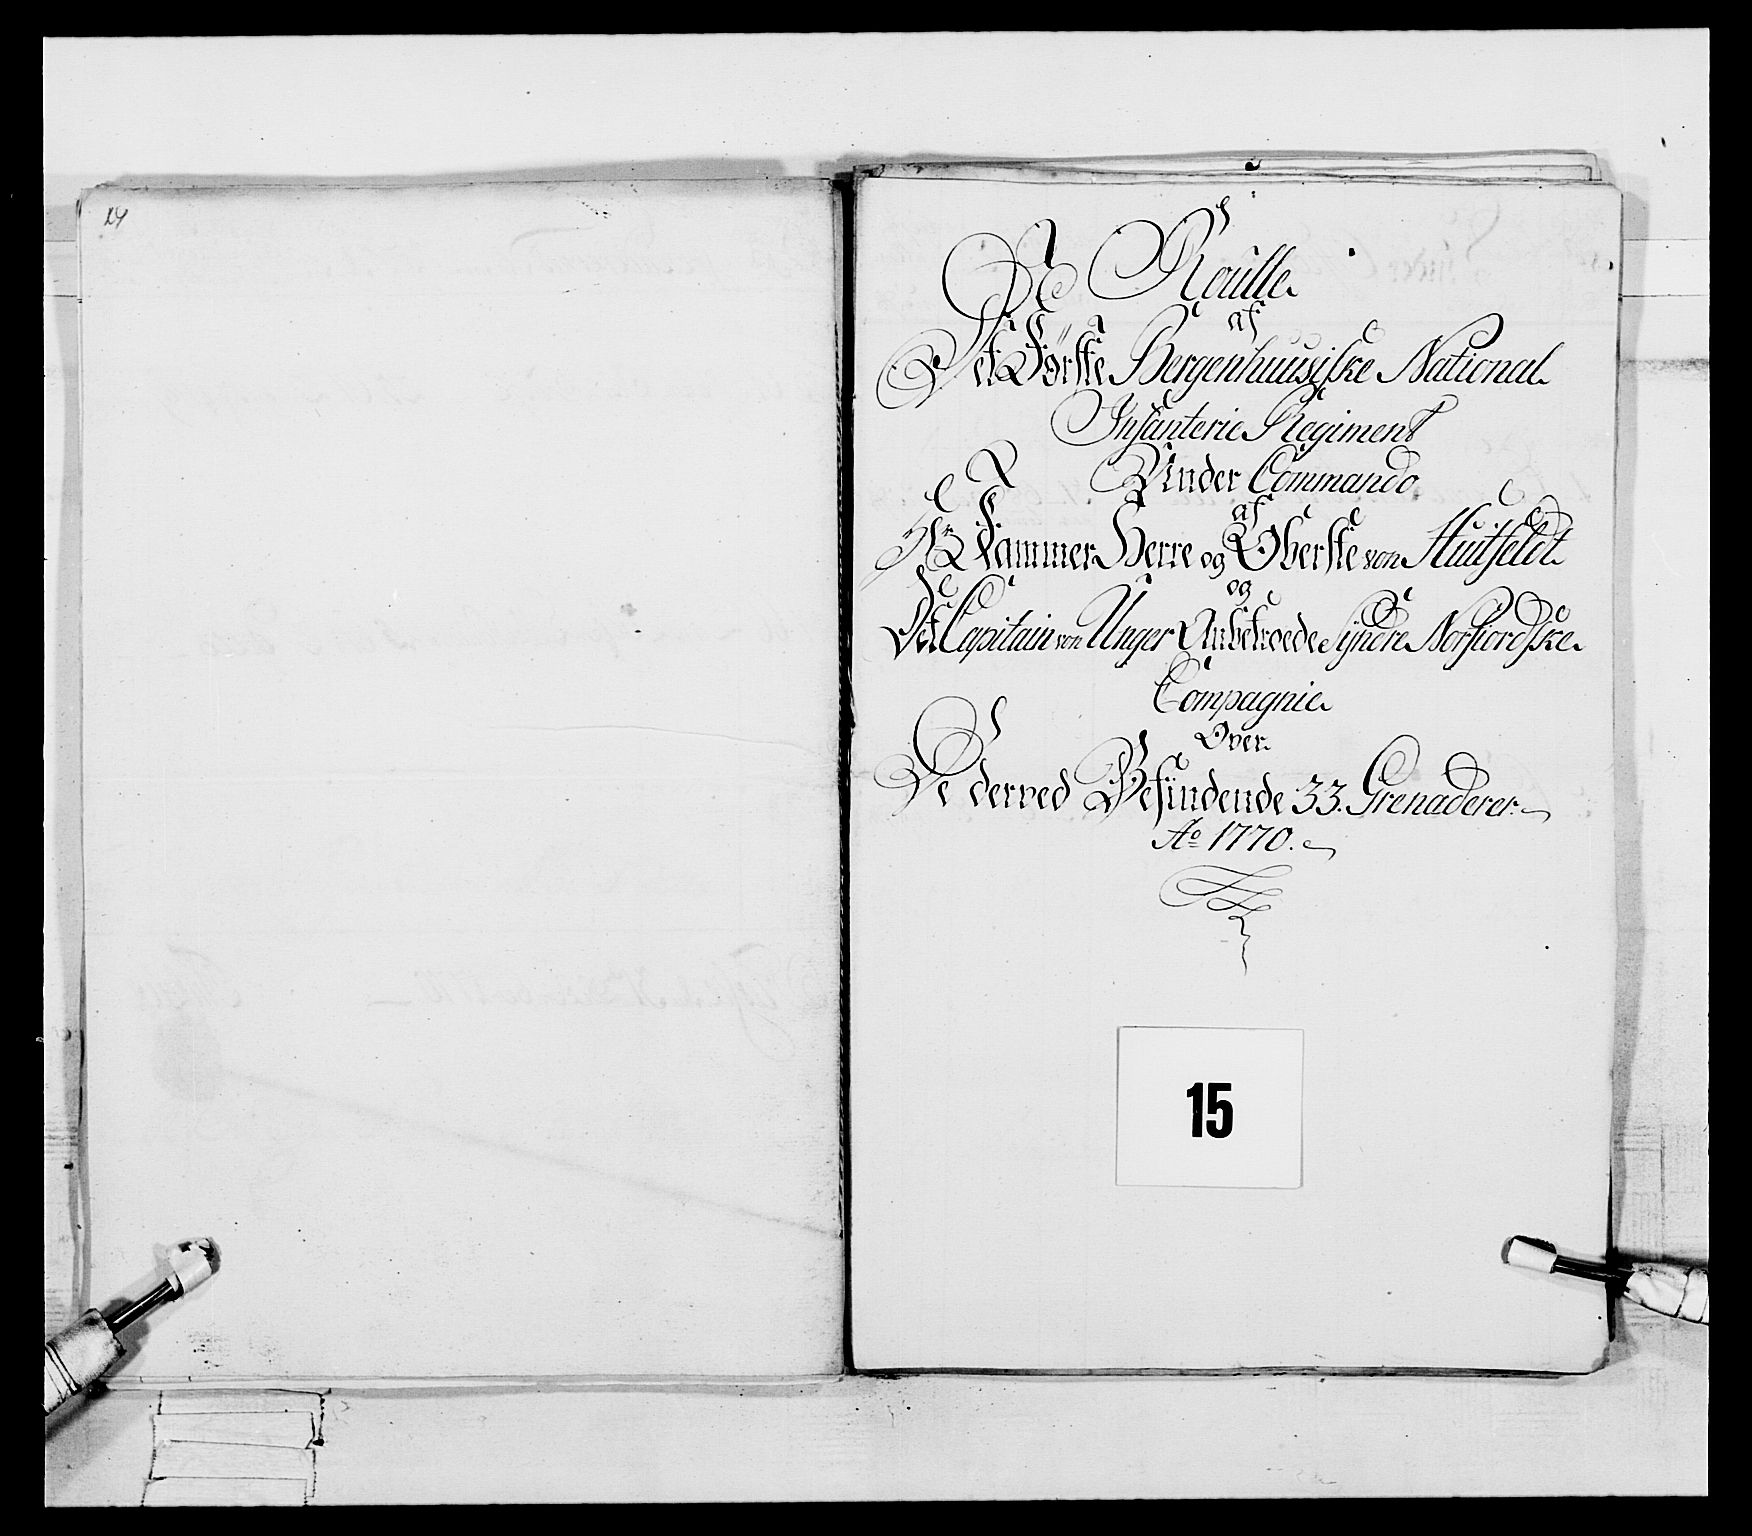 24
Roulle
af
Det Første Bergenhuusiske National
Infanterie Regiment
Under Commando
af
Hr Kammer Herre og Oberste von Huitfeldt
og
Det Capitain von Unger Anbetroede Syndre Norfiordske
Compagnie
Over
De derved Befindende 33. Grenaderer
Ao 1770.
15